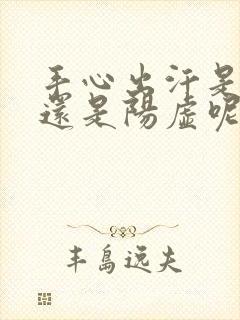 手心出汗是
還是陽虛呢
丰島远夫